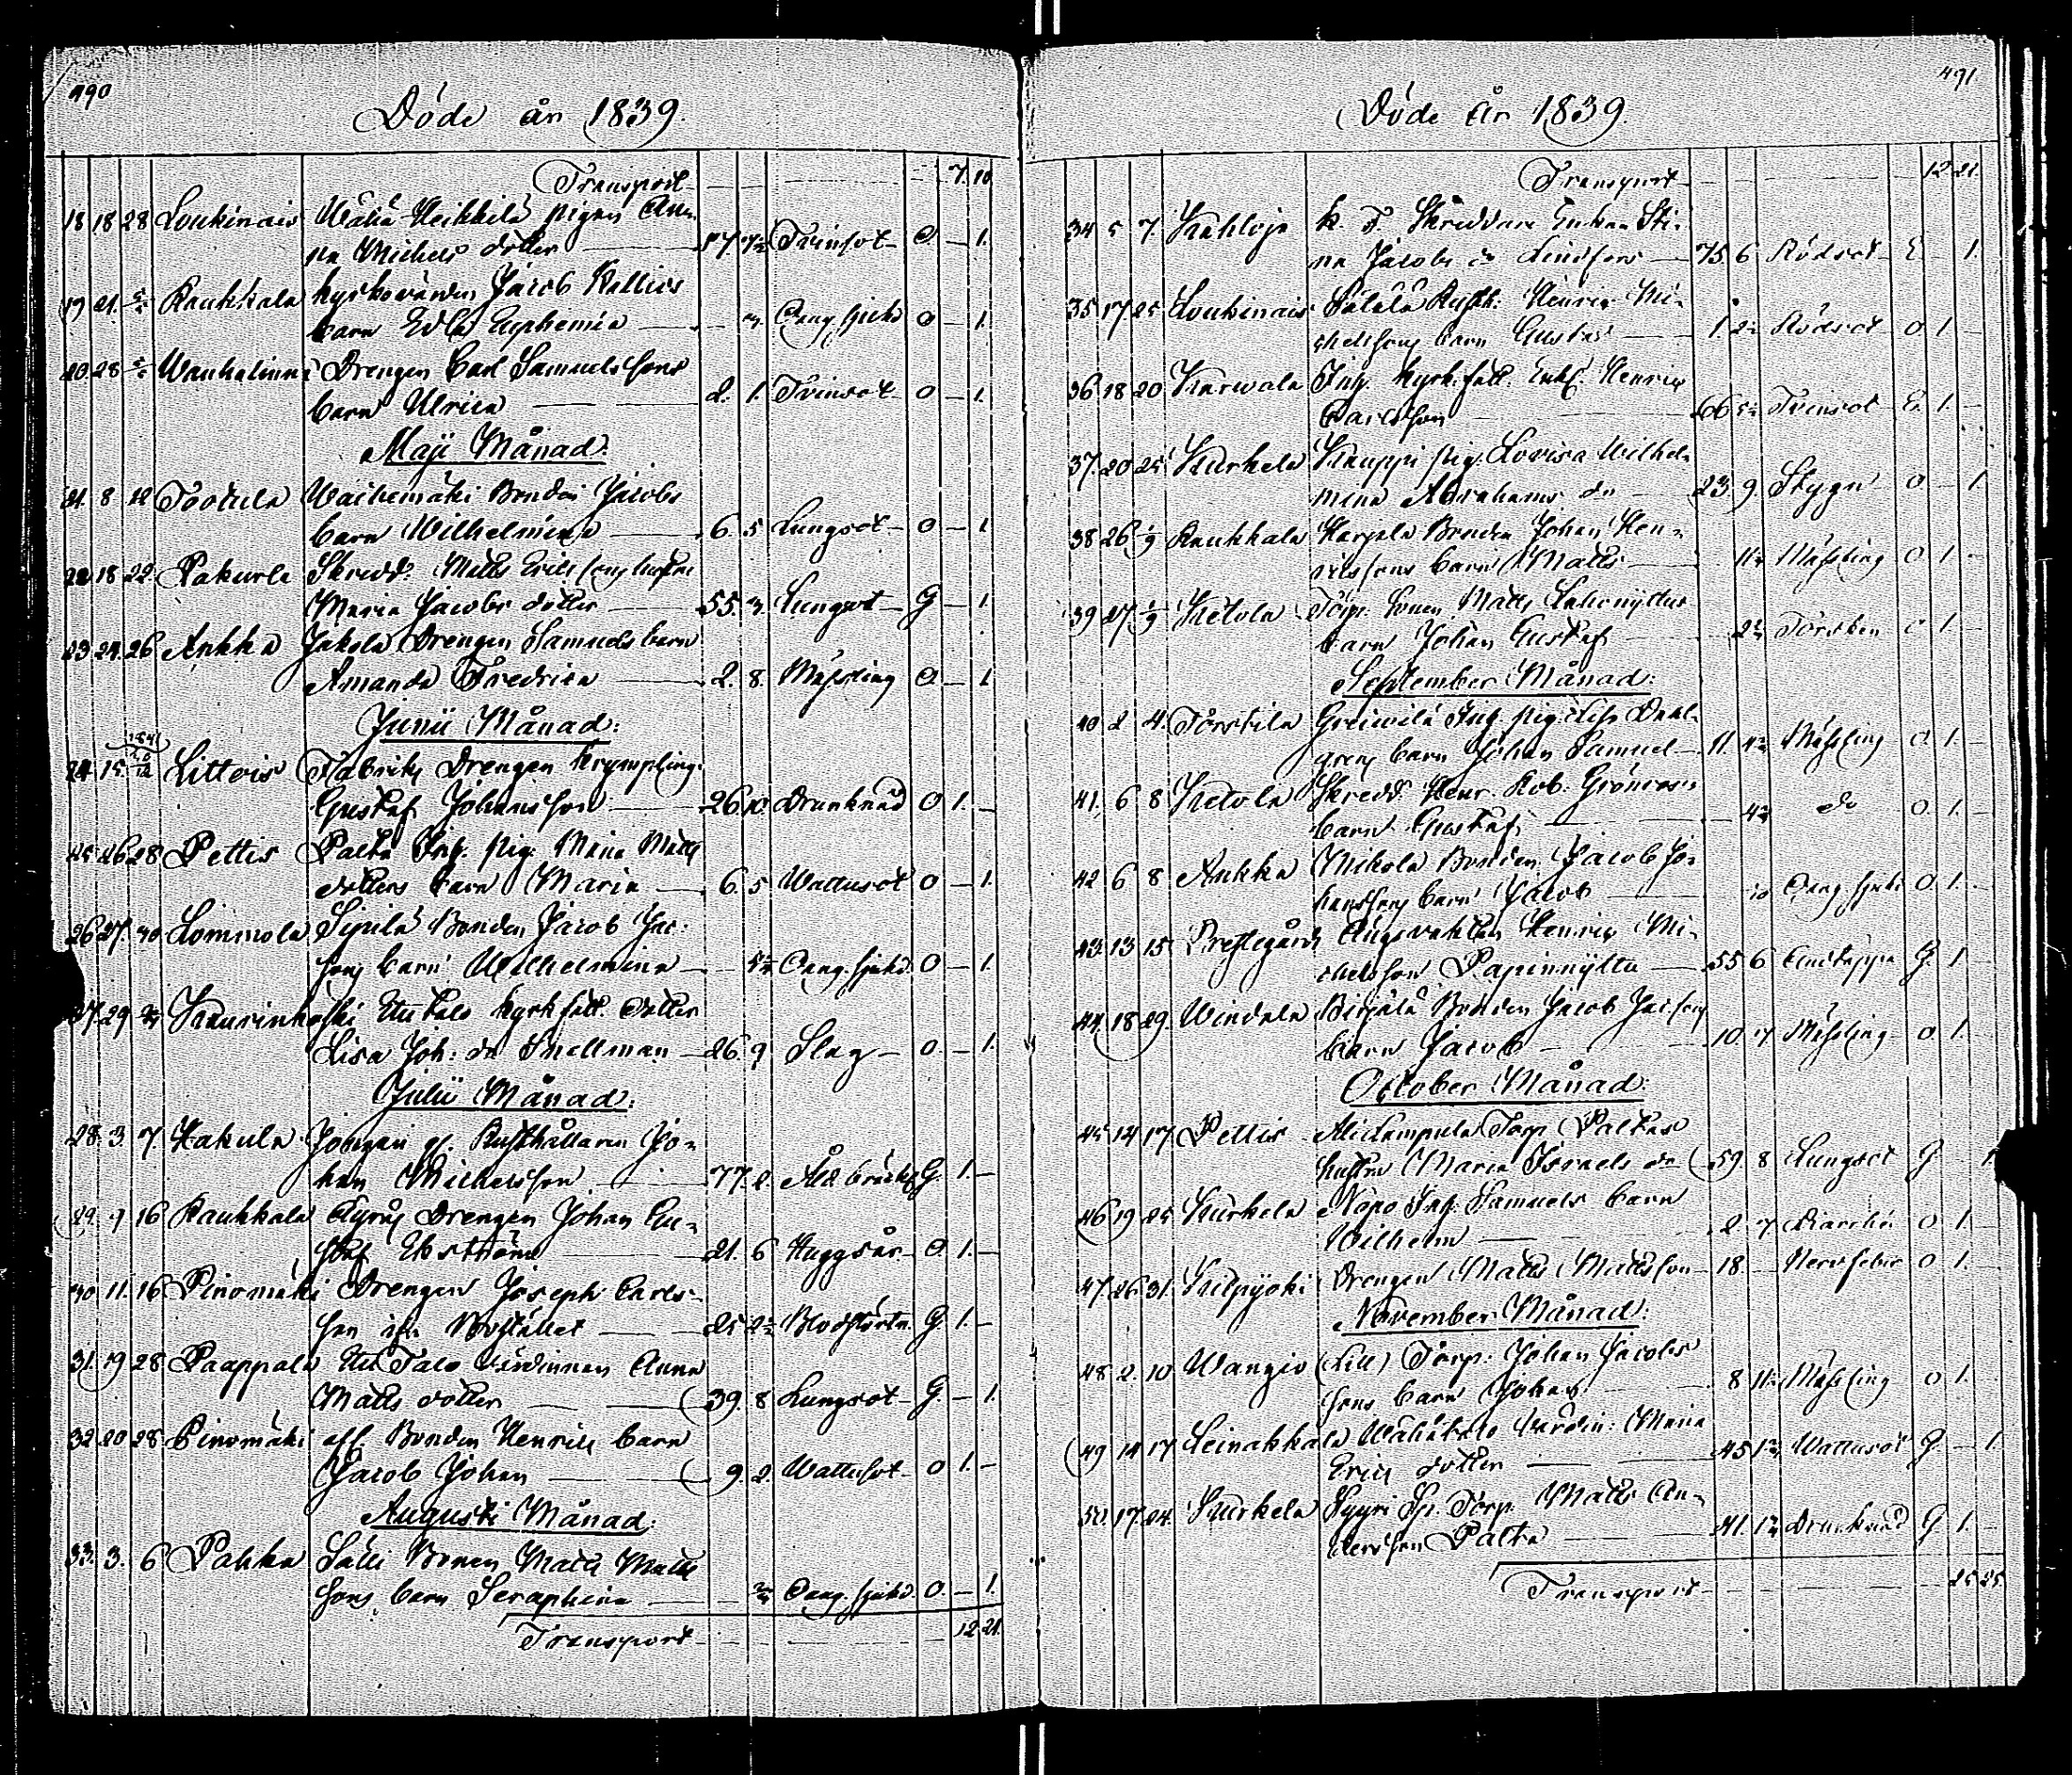 490
Döde år 1839.
Transport 7. 10
18 18 28 Loukinais Wähä Heikkilä pigan An-
na Michels dotter 17. 7½ Tvinsot O. 1.
19 21. Kaukkala kyrkovärden Jacob Kallios
barn Edla Euphemia Oang. sjukd O 1.
20. 28 Wanhalinna Drengen Carl Samuelssons
barn Ulrica 2. 1. Tvinsot O 1.
Maji Månad.
21. 8 12 Tootula Waihemäki Bonden Jacobs
barn Wilhelmina 6. 5 Lungsot O 1
22. 18 22. Pakurla Skredd. Matts Ericssons hustru
Maria Jacobs dotter 55. 3. Lungsot G 1.
23 24. 26 Ankka Jakola Drengen Samuels barn
Amanda Fredrica 2. 8. Mässling O. 1
Junii Månad:
24. 15. 1841 Littois Fabriks Drengen Krympling.
Gustaf Johansson 26. 10. Drunknad O 1.
25 26 28 Pettis Palta Inh. pig. Maria Matts
dotters barn Maria 6. 5 Wattusot O 1.
26 27. 30 Lommola Sipilä Bonden Jacob Jac:
sons barn Wilhelmina Oang. sjukd. O 1.
27. 29 Kaurinkoski Uutalo kyrk fatt. Dotter
Lisa Joh: dr Snellman 26. 9 Slag O. 1.
Julii Månad:
28. 3. 7 Hakula gl. Rusthållaren Jo-
han Michelsson 77. 2. Åld. bräckl. G. 1.
29. 9 16 Kaukkala Kyrås Drengen Johan Gu-
staf Ekström 21. 6 Huggsår O. 1.
30 11. 16 Pinomäki Drengen Joseph Carls-
son ifr. Bostället 25 Blodstörtn. G. 1.
31. 19 28 Paappala Uu Talo värdinnan Anna
Matts dotter 39. 8 Lungsot G. 1.
32. 20 28 Pinomäki aff. Bonden Henrics barn
Jacob Johan 9. 2. Wattusot O 1.
Augusti Månad:
33. 3. 6 Pahka Sälli Bonden Matts Matts
sons barn Seraphina Oang. sjukd. O 1.
Transport 12 21.
491.
Döde År 1839.
Transport 12 21.
34 5 7. Kahloja k. f. Skreddare Enkan Sti-
na Jacobs dr Lindfors 75. 6 Rödsot E 1.
35 17 25 Loukinais Sälälä Rusth. Henric Mi-
chelssons barn Gustaf 1. Rödsot O 1.
36 18 20 Karwala Inh. kyrk fatt. Enkl. Henric
Carlsson 66 Tvinsot E. 1.
37. 20 25 Kurkela Kauppi pig. Lovisa Wilhel-
mina Abrahams dr 23. 9. Stygn O 1
38 26 Kaukkala Karjala Bonden Johan Hen-
ricssons barn Matts Mässling O 1.
39 27. Ketola Torp. sonen Matts Lehonyttus
barn Johan Gustaf Torsken O 1.
September Månad:
40 2 4. Torstila Inh. pig. Lisa Dahl-
grens barn Johan Samuel 11. Mässling O. 1.
41. 6 8 Ketola Skredd. Henr. Rob. Grönroos
barn Gustaf do O. 1.
42 6 8 Ankka Mikola Bonden Jacob Jo-
hanssons barn Jacob 10 Oang. sjukd O. 1.
43. 13 15. Prestegård Ängsvakten Henric Mi-
chelsson Papinnyttu 55 6 Andtäppa G. 1.
44. 18 29. Windala Birjälä Bonden Jacob Jacssons
barn Jacob 10 7 Mässling O. 1.
October Månad:
45 14 17 Pettis Alidampula Torp. Paltas
hustru Maria Israels dr 59 8 Lungsot G 1.
46 19 25 Kurkela Nopo Inh. Samuels barn
Wilhelm 2 7 Diarrhé O 1.
47. 26. 31. Kulpyoki Drengen Matts Mattsson 18. Nervfeber O 1.
November Månad:
48 2. 10 Wangio (Lill) Torp. Johan Jacobs
sons barn Johan 8 Mässling O 1.
49 14 17 Leinakkala Wähätalo Värdin: Maria
Erics dotter 45 Wattusot G 1.
50. 17. 24. Kurkela Syyri Sp. Torp. Matts An-
dersson Palta 41. Drunknad G 1.
Transport 25 25.